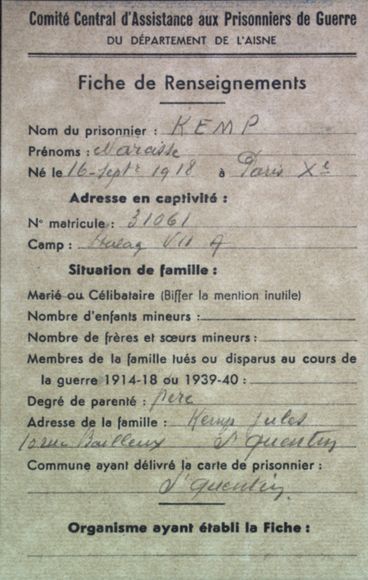 Comité Central d'Assistance aux Prisonniers de Guerre
DU DÉPARTEMENT DE L'AISNE
Fiche de Renseignements
Nom du prisonnier : KEMP
Prénoms : Narcisse
Né le 16 Septe 1918 à Paris Xe
Adresse en captivité :
N° matricule : 31061
Camp : Stalag VII A
Situation de famille :
Marié ou Célibataire (Biffer la mention inutile)
Nombre d'enfants mineurs :
Nombre de frères et sœurs mineurs :
Membres de la famille tués ou disparus au cours de
la guerre 1914-18 ou 1939-40 :
Degré de parenté : père
Adresse de la famille : Kemp Jules
10 rue Bailleux St Quentin
Commune ayant délivré la carte de prisonnier :
St Quentin
Organisme ayant établi la Fiche :